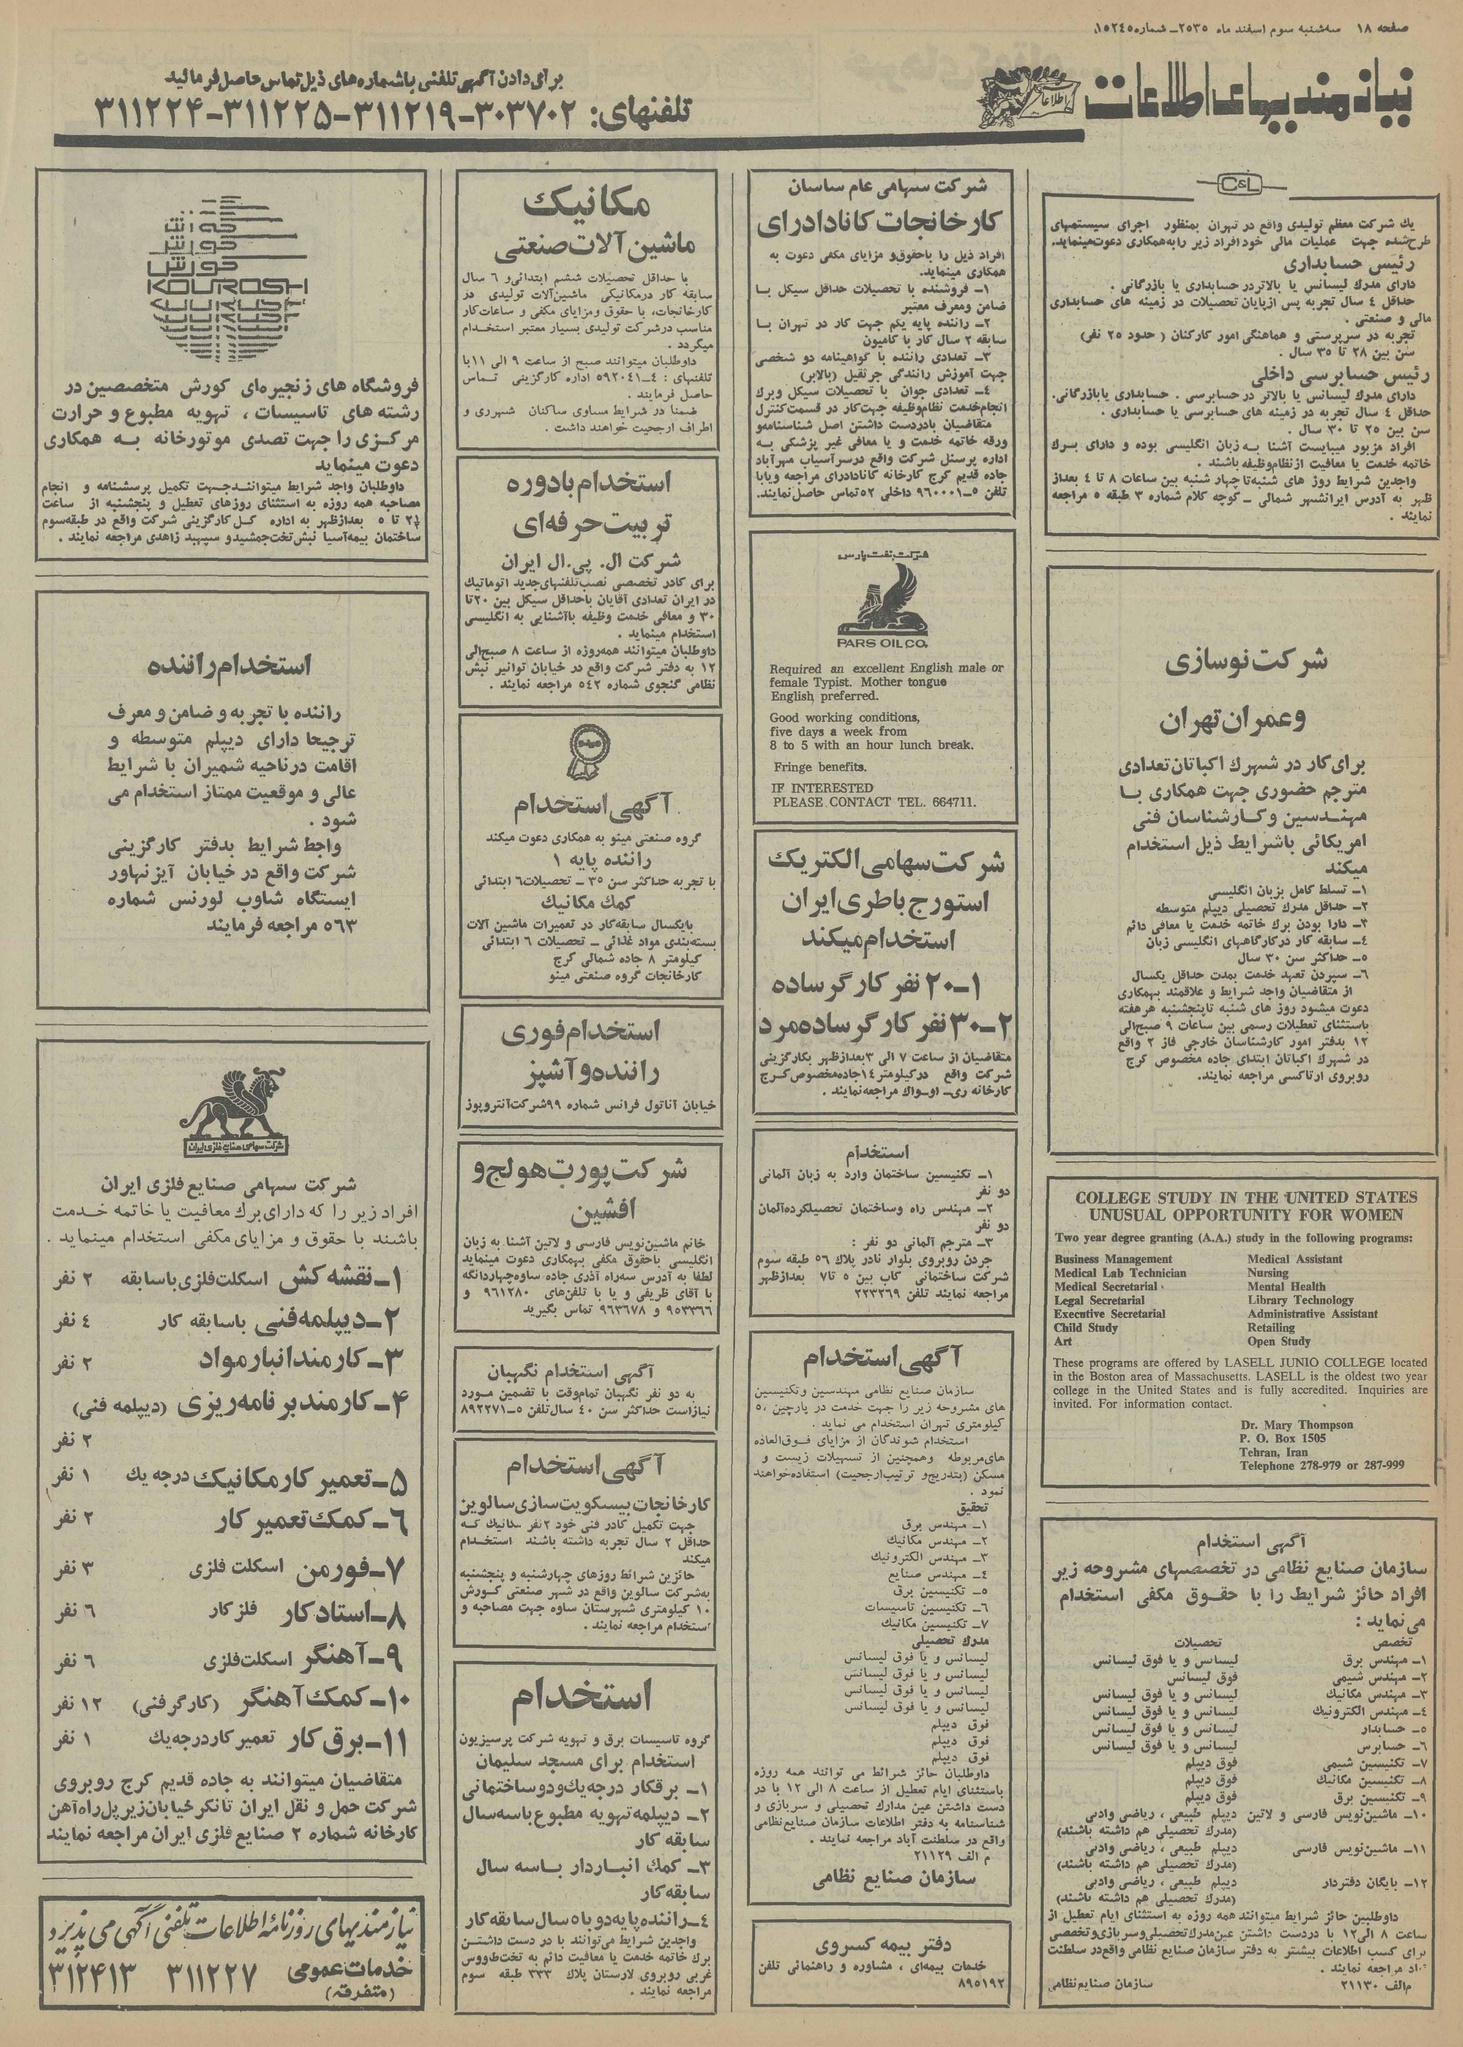 صفحه ۱۸ سه‌شنبه سوم اسفند ماه ۲۵۳۵ـ شماره ۱۵۲٤۵
نیازمندیهای اطلاعات
برای دادن آگهی تلفنی باشماره‌های ذیل تماس حاصل فرمائید
تلفنهای: ۳۰۳۷۰۲-۳۱۱۲۱۹-۳۱۱۲۲۵-۳۱۱۲۲۴
C&L
یك شرکت معظم تولیدی واقع در تهران بمنظور اجرای سیستمهای
طرح‌شده جهت عملیات مالی خود افراد زیر را به‌همکاری دعوت‌مینماید.
رئیس حسابداری
دارای مدرك لیسانس یا بالاتر در حسابداری یا بازرگانی .
حداقل ٤ سال تجربه پس ازپایان تحصیلات در زمینه های حسابداری
مالی و صنعتی .
تجربه در سرپرستی و هماهنگی امور کارکنان ( حدود ۲۵ نفر)
سن بین ۲۸ تا ۳۵ سال .
رئیس حسابرسی داخلی
دارای مدرك لیسانس یا بالاتر در حسابرسی . حسابداری یابازرگانی.
حداقل ٤ سال تجربه در زمینه های حسابرسی یا حسابداری .
سن بین ۲۵ تا ۳۰ سال .
افراد مزبور میبایست آشنا به زبان انگلیسی بوده و دارای برك
خاتمه خدمت یا معافیت ازنظام‌وظیفه باشند .
واجدین شرایط روز های شنبه‌تا چهار شنبه بین ساعات ۸ تا ٤ بعداز
ظهر به آدرس ایرانشهر شمالی ـ کوچه کلام شماره ۳ طبقه ۵ مراجعه
نمایند .
شرکت نوسازی
وعمران تهران
برای کار در شهرك اکباتان تعدادی
مترجم حضوری جهت همکاری با
مهندسین و کارشناسان فنی
امریکائی باشرایط ذیل استخدام
میکند
۱ـ تسلط کامل بزبان انگلیسی
۲ـ حداقل مدرك تحصیلی دیپلم متوسطه
۳ـ دارا بودن برك خاتمه خدمت یا معافی دائم
٤ـ سابقه کار درکارگاههای انگلیسی زبان
۵ـ حداکثر سن ۳۰ سال
٦ـ سپردن تعهد خدمت بمدت حداقل یکسال
از متقاضیان واجد شرایط و علاقمند بهمکاری
دعوت میشود روز های شنبه تاپنجشنبه هرهفته
باستثنای تعطیلات رسمی بین ساعات ۹ صبح‌الی
۱۲ بدفتر امور کارشناسان خارجی فاز ۲ واقع
در شهرك اکباتان ابتدای جاده مخصوص کرج
روبروی ارتاکسی مراجعه نمایند.
COLLEGE STUDY IN THE UNITED STATES
UNUSUAL OPPORTUNITY FOR WOMEN
Two year degree granting (A.A.) study in the following programs:
Business Management Medical Assistant
Medical Lab Technician Nursing
Medical Secretarial Mental Health
Legal Secretarial Library Technology
Executive Secretarial Administrative Assistant
Child Study Retailing
Art Open Study
These programs are offered by LASELL JUNIO COLLEGE located
in the Boston area of Massachusetts. LASELL is the oldest two year
college in the United States and is fully accredited. Inquiries are
invited. For information contact.
Dr. Mary Thompson
P. O. Box 1505
Tehran, Iran
Telephone 278-979 or 287-999
آگهی استخدام
سازمان صنایع نظامی در تخصصهای مشروحه زیر
افراد حائز شرایط را با حقوق مکفی استخدام
می‌نماید :
تخصص تحصیلات
۱ـ مهندس برق لیسانس و یا فوق لیسانس
۲ـ مهندس شیمی فوق لیسانس
۳ـ مهندس مکانیك لیسانس و یا فوق لیسانس
٤ـ مهندس الکترونیك لیسانس و یا فوق لیسانس
۵ـ حسابدار لیسانس و یا فوق لیسانس
٦ـ حسابرس لیسانس و یا فوق لیسانس
۷ـ تکنیسین شیمی فوق دیپلم
۸ـ تکنیسین مکانیك فوق دیپلم
۹ـ تکنیسین برق فوق دیپلم
۱۰ـ ماشین‌نویس فارسی و لاتین دیپلم طبیعی ، ریاضی وادبی
(مدرك تحصیلی هم داشته باشند)
۱۱ـ ماشین‌نویس فارسی دیپلم طبیعی ، ریاضی وادبی
(مدرك تحصیلی هم داشته باشند)
۱۲ـ بایگان دفتردار دیپلم طبیعی ، ریاضی وادبی
(مدرك تحصیلی هم داشته باشند)
داوطلبین حائز شرایط میتوانند همه روزه به استثنای ایام تعطیل از
ساعت ۸ الی۱۲ با دردست داشتن عین‌مدرك‌تحصیلی‌وسربازی‌وتخصصی
برای کسب اطلاعات بیشتر به دفتر سازمان صنایع نظامی واقع‌در سلطنت
آباد مراجعه نمایند .
م‌الف ۲۱۱۳۰ سازمان صنایع‌نظامی
شرکت سهامی عام ساسان
کارخانجات کانادادرای
افراد ذیل را باحقوق‌و مزایای مکفی دعوت به
همکاری مینماید.
۱ـ فروشنده با تحصیلات حداقل سیکل با
ضامن ومعرف معتبر
۲ـ راننده پایه یکم جهت کار در تهران با
سابقه ۲ سال کار با کامیون
۳ـ تعدادی راننده با گواهینامه دو شخصی
جهت آموزش رانندگی جرثقیل (بالابر)
٤ـ تعدادی جوان با تحصیلات سیکل وبرك
انجام‌خدمت نظام‌وظیفه جهت‌کار در قسمت‌کنترل
متقاضیان بادردست داشتن اصل شناسنامه‌و
ورقه خاتمه خدمت و یا معافی غیر پزشکی به
اداره پرسنل شرکت واقع درسرآسیاب مهرآباد
جاده قدیم کرج کارخانه کانادادرای مراجعه ویابا
تلفن ۵ـ۹٦۰۰۰۱ داخلی ۵۲ تماس حاصل‌نمایند.
شرکت نفت پارس
PARS OIL CO.
Required an excellent English male or
female Typist. Mother tongue
English preferred.
Good working conditions,
five days a week from
8 to 5 with an hour lunch break.
Fringe benefits.
IF INTERESTED
PLEASE CONTACT TEL. 664711.
شرکت سهامی الکتریک
استورج باطری ایران
استخدام میکند
۱ـ ۲۰ نفر کارگر ساده
۲ـ ۳۰ نفر کارگر ساده مرد
متقاضیان از ساعت ۷ الی ۳بعدازظهر بکارگزینی
شرکت واقع درکیلومتر ۱٤جاده‌مخصوص‌کرج
کارخانه ری‌ـ او‌واك مراجعه‌نمایند .
استخدام
۱ـ تکنیسین ساختمان وارد به زبان آلمانی
دو نفر
۲ـ مهندس راه وساختمان تحصیلکرده‌آلمان
دو نفر
۳ـ مترجم آلمانی دو نفر :
جردن روبروی بلوار نادر پلاك ۵٦ طبقه سوم
شرکت ساختمانی کاب بین ۵ تا۷ بعدازظهر
مراجعه نمایند تلفن ۲۲۳۲٦۹
آگهی استخدام
سازمان صنایع نظامی مهندسین وتکنیسین
های مشروحه زیر را جهت خدمت در پارچین ۵۰
کیلومتری تهران استخدام می نماید .
استخدام شوندگان از مزایای فوق‌العاده
های‌مربوطه وهمچنین از تسهیلات زیست و
مسکن (بتدریج‌و ترتیب‌ارجحیت) استفاده‌خواهند
نمود .
تحقیق
۱ـ مهندس برق
۲ـ مهندس مکانیك
۳ـ مهندس الکترونیك
٤ـ مهندس صنایع
۵ـ تکنیسین برق
٦ـ تکنیسین تاسیسات
۷ـ تکنیسین مکانیك
مدرك تحصیلی
لیسانس و یا فوق لیسانس
لیسانس و یا فوق لیسانس
لیسانس و یا فوق لیسانس
لیسانس و یا فوق لیسانس
فوق دیپلم
فوق دیپلم
فوق دیپلم
داوطلبان حائز شرائط می توانند همه روزه
باستثنای ایام تعطیل از ساعت ۸ الی ۱۲ با در
دست داشتن عین مدارك تحصیلی و سربازی و
شناسنامه به دفتر اطلاعات سازمان صنایع‌نظامی
واقع در سلطنت آباد مراجعه نمایند .
م الف ۲۱۱۲۹
سازمان صنایع نظامی
دفتر بیمه کسروی
خدمات بیمه‌ای ، مشاوره و راهنمائی تلفن
۸۹۵۱۹۲
مکانیک
ماشین آلات صنعتی
با حداقل تحصیلات ششم ابتدائی‌و ٦ سال
سابقه کار درمکانیکی ماشین‌آلات تولیدی در
کارخانجات، با حقوق ومزایای مکفی و ساعات‌کار
مناسب درشرکت تولیدی بسیار معتبر استخدام
میگردد .
داوطلبان میتوانند صبح از ساعت ۹ الی ۱۱با
تلفنهای : ٤ـ۵۹۲۰٤۱ اداره کارگزینی تماس
حاصل فرمایند .
ضمنا در شرایط مساوی ساکنان شهرری و
اطراف ارجحیت خواهند داشت .
استخدام بادوره
تربیت حرفه‌ای
شرکت ال. پی.ال ایران
برای کادر تخصصی نصب‌تلفنهای‌جدید اتوماتیك
در ایران تعدادی آقایان باحداقل سیکل بین ۲۰تا
۳۰ و معافی خدمت وظیفه باآشنایی به انگلیسی
استخدام مینماید .
داوطلبان میتوانند همه‌روزه از ساعت ۸ صبح‌الی
۱۲ به دفتر شرکت واقع در خیابان توانیر نبش
نظامی گنجوی شماره ۵٤۲ مراجعه نمایند .
آگهی استخدام
گروه صنعتی مینو به همکاری دعوت میکند
راننده پایه ۱
با تجربه حداکثر سن ۳۵ ـ تحصیلات٦ ابتدائی
کمك مکانیك
بایکسال سابقه‌کار در تعمیرات ماشین آلات
بسته‌بندی مواد غذائی ـ تحصیلات ٦ ابتدائی
کیلومتر ۸ جاده شمالی کرج
کارخانجات گروه صنعتی مینو
استخدام فوری
راننده و آشپز
خیابان آناتول فرانس شماره ۹۹شرکت‌آنترپوز
شرکت پورت هولج و
افشین
خانم ماشین‌نویس فارسی و لاتین آشنا به زبان
انگلیسی باحقوق مکفی بهمکاری دعوت مینماید
لطفا به آدرس سه‌راه آذری جاده ساوه‌چهاردانگه
با آقای ظریفی و یا با تلفن‌های ۹٦۱۲۸۰ و
۹۵۳۳٦٦ و ۹٦۳٦۷۸ تماس بگیرید
آگهی استخدام نگهبان
به دو نفر نگهبان تمام‌وقت با تضمین مورد
نیازاست حداکثر سن ٤۰ سال‌تلفن ۵ـ۸۹۲۲۷۱
آگهی استخدام
کارخانجات بیسکویت‌سازی سالوین
جهت تکمیل کادر فنی خود ۲نفر مکانیك که
حداقل ۲ سال تجربه داشته باشند استخدام
میکند
حائزین شرائط روزهای چهارشنبه و پنجشنبه
به‌شرکت سالوین واقع در شهر صنعتی کورش
۱۰ کیلومتری شهرستان ساوه جهت مصاحبه و
استخدام مراجعه نمایند .
استخدام
گروه تاسیسات برق و تهویه شرکت پرسیزیون
استخدام برای مسجد سلیمان
۱ـ برقکار درجه‌یك‌ودو ساختمانی
۲ـ دیپلمه تهویه مطبوع باسه‌سال
سابقه کار
۳ـ کمك انباردار باسه سال
سابقه کار
٤ـ راننده پایه‌دو با۵سال سابقه‌کار
واجدین شرایط می‌توانند با در دست داشتن
برك خاتمه خدمت یا معافیت دائم به تخت‌طاووس
غربی روبروی لارستان پلاك ۳۳۳ طبقه سوم
مراجعه نمایند .
کورش
KOUROSH
فروشگاه های زنجیره‌ای کورش متخصصین در
رشته های تاسیسات، تهویه مطبوع و حرارت
مرکزی را جهت تصدی موتورخانه به همکاری
دعوت مینماید
داوطلبان واجد شرایط میتوانندجهت تکمیل پرسشنامه و انجام
مصاحبه همه روزه به استثنای روزهای تعطیل و پنجشنبه از ساعت
۲½ تا ۵ بعدازظهر به اداره کل کارگزینی شرکت واقع در طبقه‌سوم
ساختمان بیمه‌آسیا نبش‌تخت‌جمشیدو سپهبد زاهدی مراجعه نمایند .
استخدام راننده
راننده با تجربه و ضامن و معرف
ترجیحا دارای دیپلم متوسطه و
اقامت درناحیه شمیران با شرایط
عالی و موقعیت ممتاز استخدام می
شود .
واجط شرایط بدفتر کارگزینی
شرکت واقع در خیابان آیزنهاور
ایستگاه شاوب لورنس شماره
۵٦۳ مراجعه فرمایند
شرکت سهامی صنایع فلزی ایران
شرکت سهامی صنایع فلزی ایران
افراد زیر را که دارای برك معافیت یا خاتمه خدمت
باشند با حقوق و مزایای مکفی استخدام مینماید .
۱ـ نقشه کش اسکلت فلزی باسابقه ۲ نفر
۲ـ دیپلمه فنی باسابقه کار ٤ نفر
۳ـ کارمند انبار مواد ۲ نفر
۴ـ کارمند برنامه‌ریزی (دیپلمه فنی)
۲ نفر
۵ـ تعمیر کار مکانیک درجه یك ۱ نفر
۶ـ کمک تعمیر کار ۲ نفر
۷ـ فورمن اسکلت فلزی ۳ نفر
۸ـ استاد کار فلز کار ٦ نفر
۹ـ آهنگر اسکلت فلزی ٦ نفر
۱۰ـ کمک آهنگر (کارگر فنی) ۱۲ نفر
۱۱ـ برق کار تعمیر کار درجه یك ۱ نفر
متقاضیان میتوانند به جاده قدیم کرج روبروی
شرکت حمل و نقل ایران تانکر خیابان زیر پل راه آهن
کارخانه شماره ۲ صنایع فلزی ایران مراجعه نمایند
نیازمندیهای روزنامه اطلاعات تلفنی آگهی می پذیرد
خدمات عمومی ۳۱۱۲۲۷ ۳۱۲۴۱۳
(متفرقه)